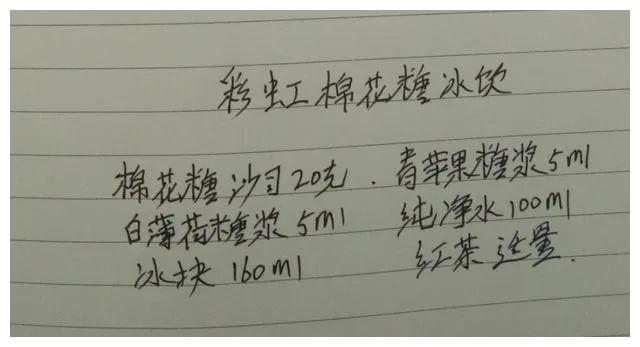 彩虹棉花糖冰饮
棉花糖沙司20克. 青苹果糖浆5ml
白薄荷糖浆 5ml 纯净水100ml
冰块 160ml 红茶适量.